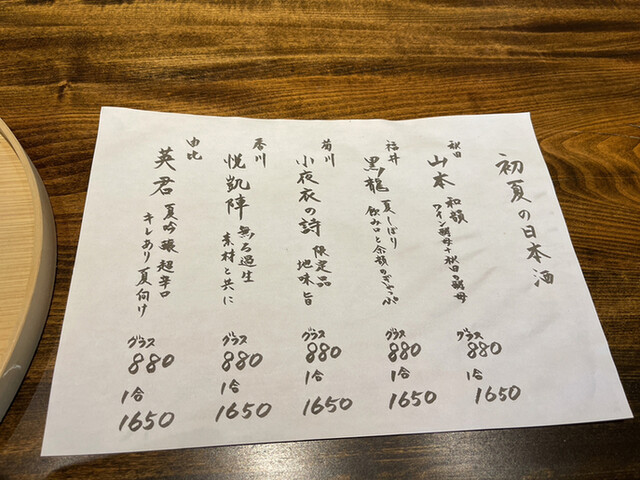 初夏の日本酒
秋田
山本 和韻
ワイン酵母+秋田の酵母
グラス
880
1合
1650
福井
黒龍 夏しぼり
飲み口と余韻のぎゃっぷ
グラス
880
1合
1650
菊川
小夜衣の詩 限定品
地味 旨
グラス
880
1合
1650
香川
悦凱陣 無ろ過生
素材と共に
グラス
880
1合
1650
由比
英君 夏吟醸 超辛口
キレあり 夏向け
グラス
880
1合
1650